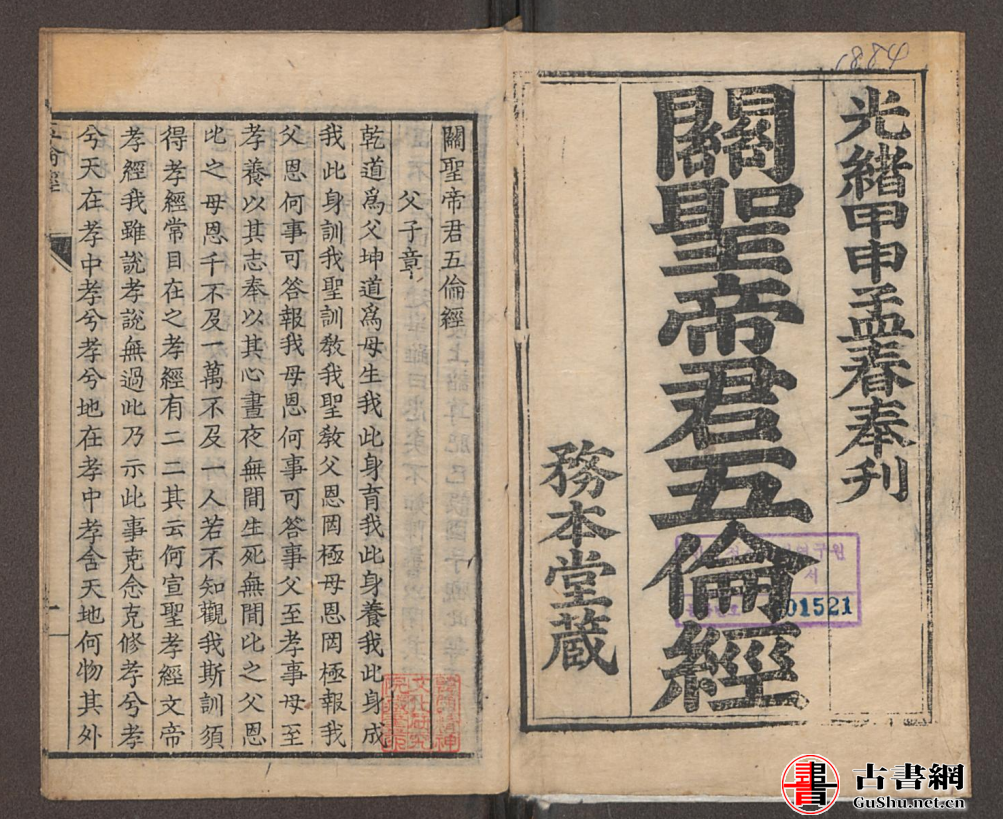 1884
光緒甲申孟春奉刊
關聖帝君五倫經
務本堂蔵
01521
關聖帝君五倫經
父子章
乾道爲父坤道爲母生我此身育我此身養我此身成
我此身訓我聖訓教我聖教父恩罔極母恩罔極報我
父恩何事可答報我母恩何事可答事父至孝事母至
孝養以其志奉以其心晝夜無間生死無間比之父恩
比之母恩千不及一萬不及一人若不知觀我斯訓須
得孝經常目在之孝經有二二其云何宣聖孝經文帝
孝經我雖說孝說無過此乃示此事克念克修孝兮孝
兮天在孝中孝兮孝兮地在孝中孝含天地何物其外
五倫經
一
古書網
GuShu.net.cn